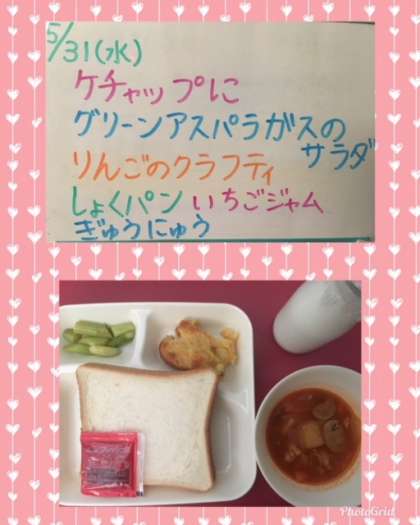 5/31(水)
ケチャップに
グリーンアスパラガスの
サラダ
りんごのクラフティ
しょくパン いちごジャム
ぎゅうにゅう
PhotoGrid